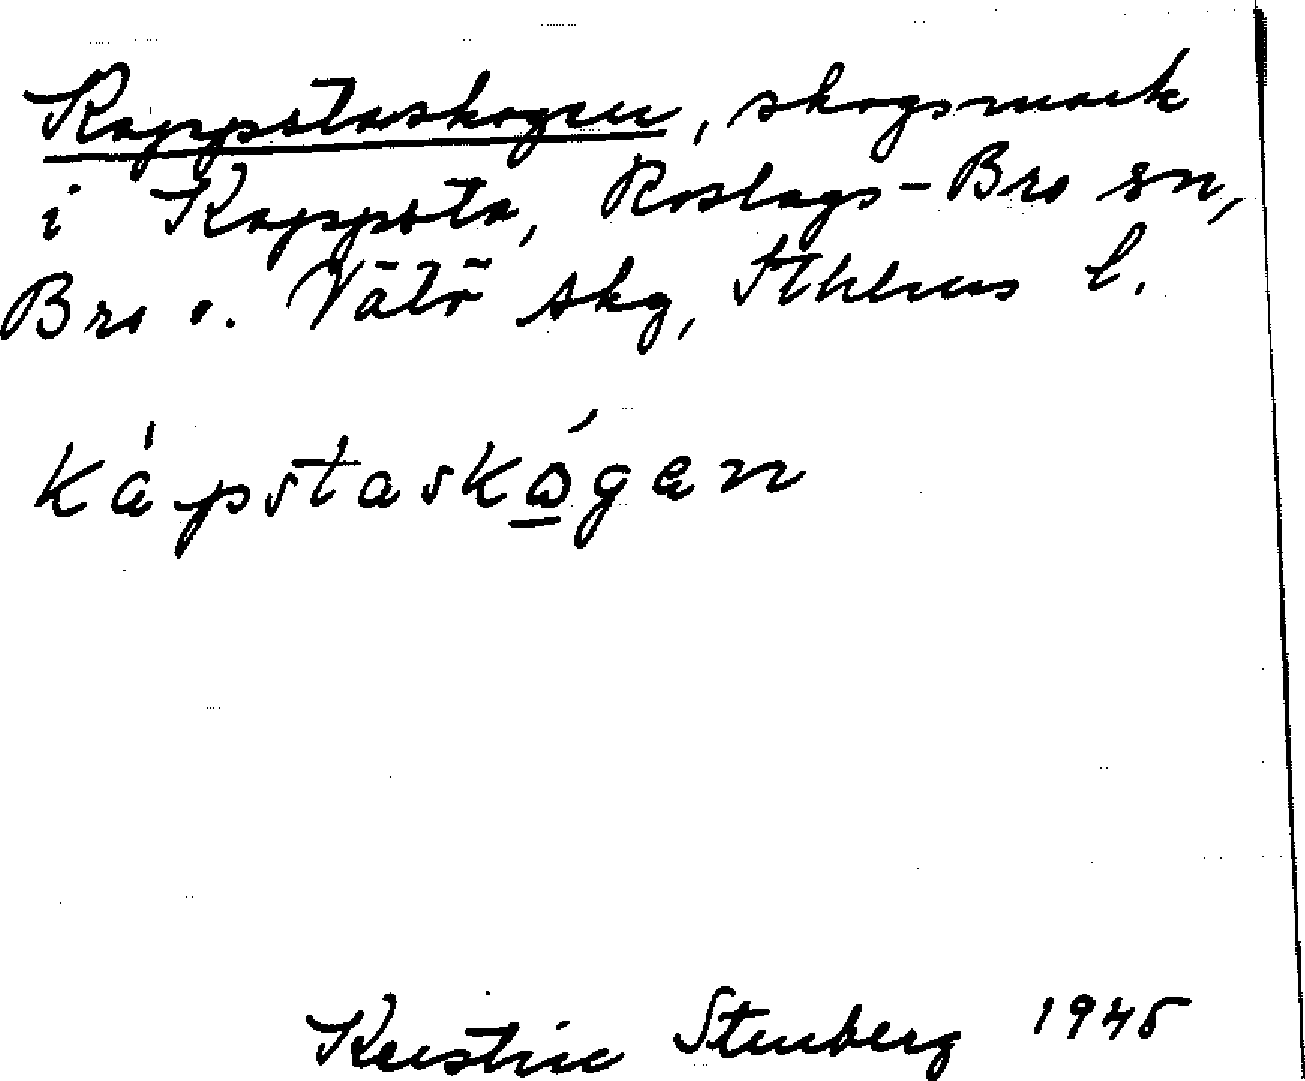 Kappstaskogen, skogsmark
i Kappsta, Roslags-Bro sn,
Bro o. Vätö skg, Sthlms l.
kápstaskógan
Kerstin Stenberg 1945